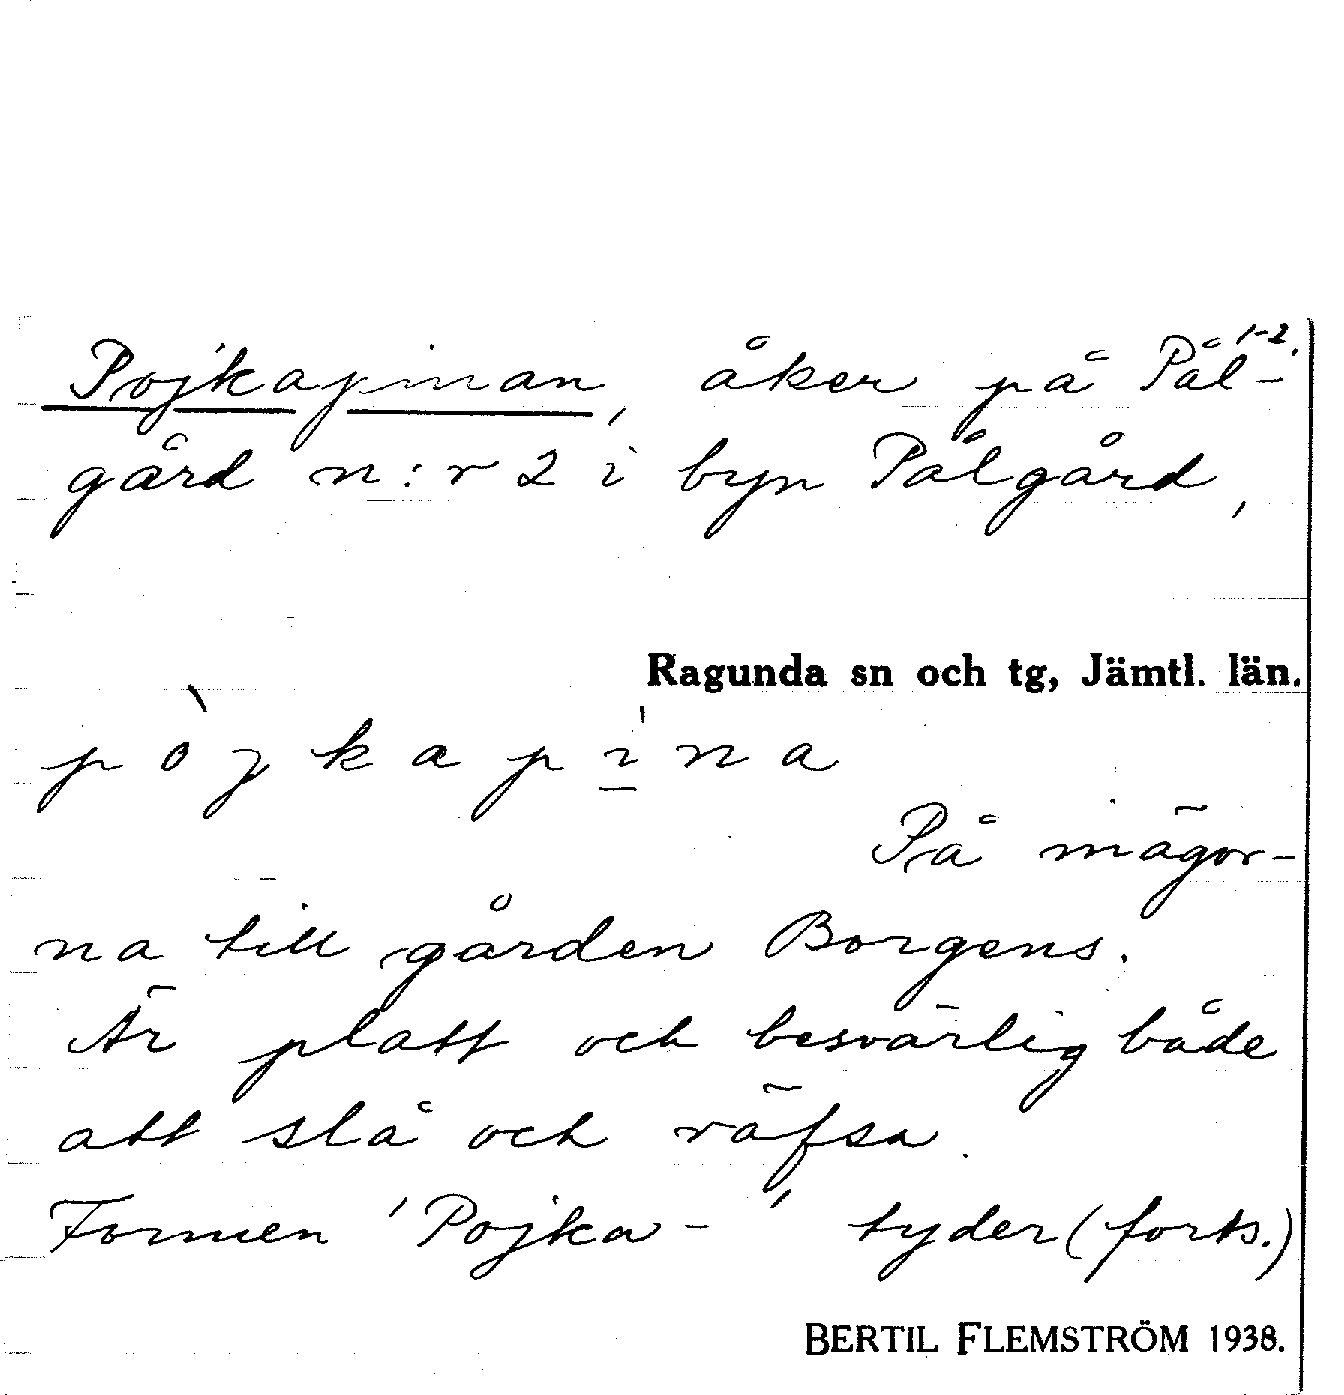 1-2.
Pojkapinan, åker på Pål-
gård n:r 2 i byn Pålgård,
Ragunda sn och tg, Jämtl. län.
pòjkapi̱'na
På mägor-
na till gården Borgens.
Är platt och besvärlig både
att slå och räfsa.
Formen 'Pojka-' tyder (forts.)
BERTIL FLEMSTRÖM 1938.